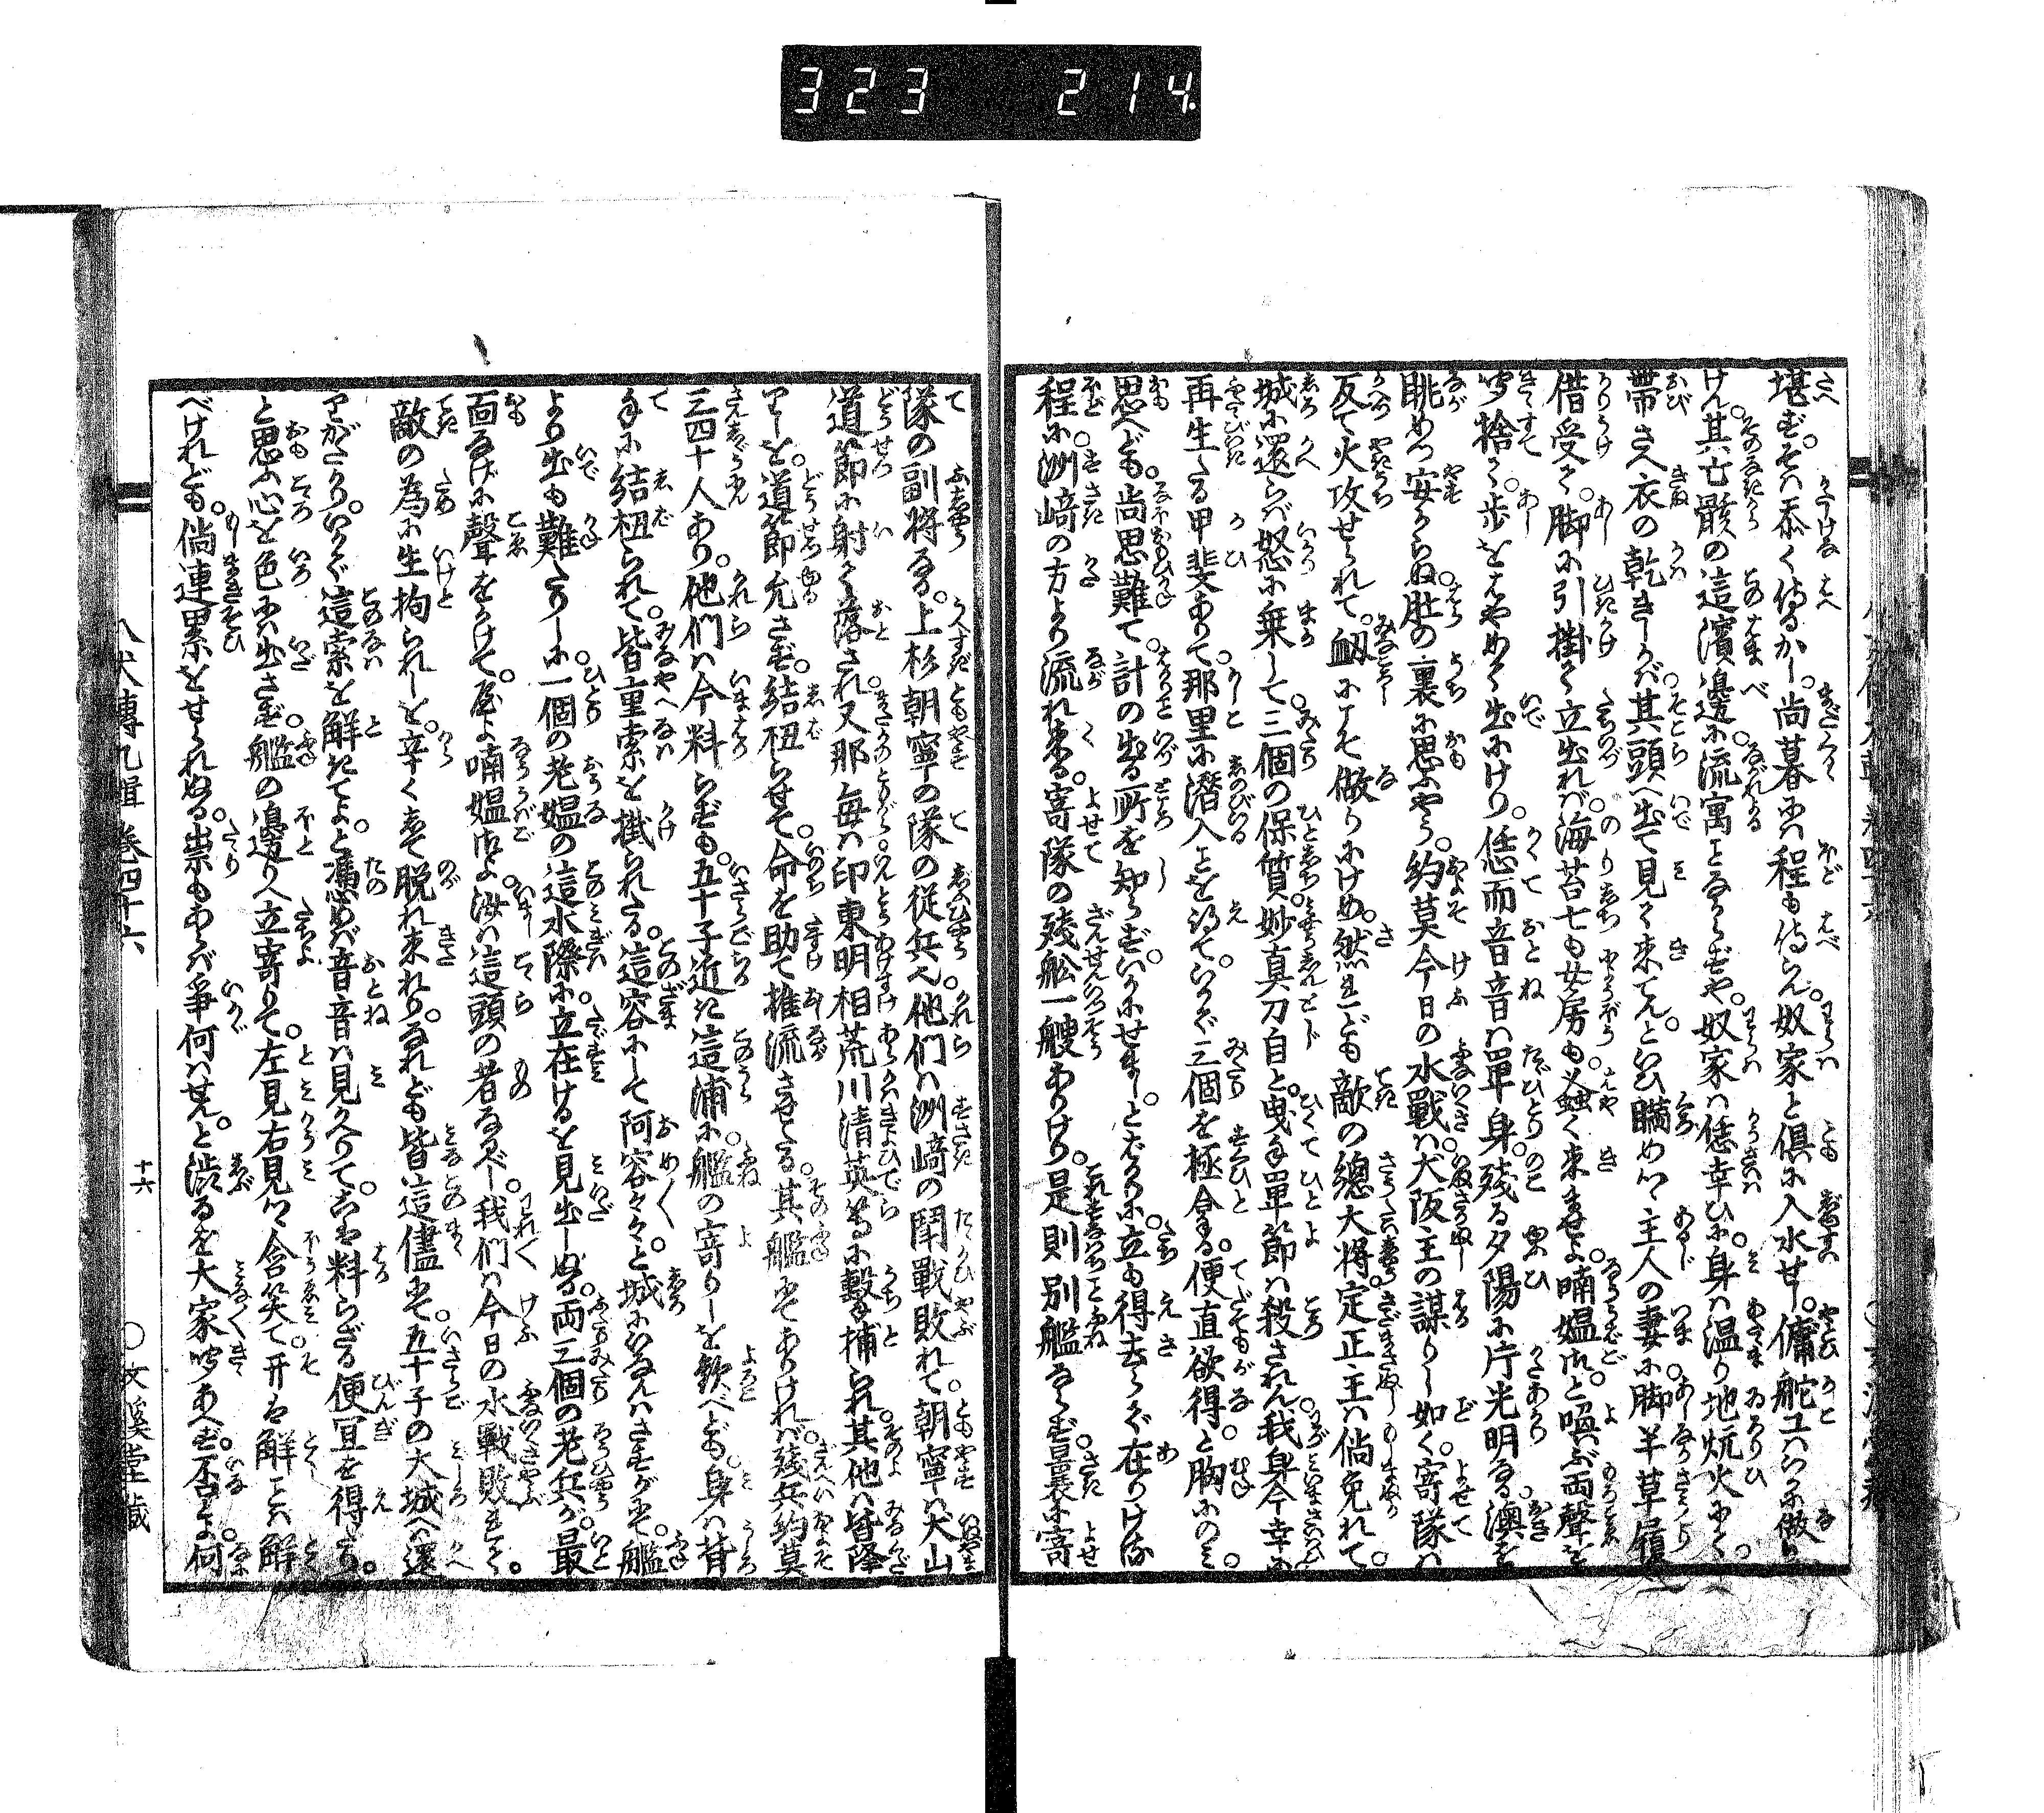 323 214.
堪ず。そは忝く侍るかし。尚暮には程も侍らん。奴家と倶に入水せし。傭舵工はいかに做り
けん。其亡骸の這濱邊に流寓ことならずや。奴家は恁幸ひに。身は温り地炕火にて。
帯さへ衣の乾きしかば。其頭へ出て見て来てん。といひ瞞めつ。主人の妻に脚半草履を
借受て。脚に引掛て立出れば。海苔七も女房も。蚤く来ませよ。喃媼御。と喚ぶ両聲を
听捨て。歩をはやめて出にけり。恁而音音は單身。残る夕陽に片光明なる。澳を
眺めつ安からぬ。肚の裏に思ふやう。約莫今日の水戰は。犬阪主の謀りし如く。寄隊は
反て火攻せられて。衂にこそ做りにけめ。然れども敵の總大将。定正主は倘免れて。
城に還らば怒に乗して。三個の保質。妙真刀自と。曳手單節は殺されん。我身今幸に
再生たる甲斐ありて。那里に潜入ことを得て。いかで三個を極合る。便直欲得。と胸にのみ。
思へども。尚思難て。計の出る所を知らず。いかにせまし。とばかりに。立も得去らで在りける
程に。洲﨑の方より流れ来る。寄隊の残舩一艘ありけり。是則別艦ならず。曩に寄
隊の副将なる。上杉朝寧の隊の従兵也。他們は洲﨑の閗戰敗れて。朝寧は犬山
道節に射て落され。又那毎は印東明相荒川清英等に。撃捕られ。其他は皆降
りしを。道節允さず。結扭らせて。命を助て推流させたる。其艦にてありければ。殘兵約莫
三四十人あり。他們は今料らずも。五十子近き這浦に。艦の寄りしを歓べども。身は背
手に結扭られて。皆重索を掛られたる。這容にして阿容々々と。城にはいなんはさすがにて。艦
より出も難たりしに。一個の老媼の這水際に。立在けるを見出しぬる。両三個の老兵が。最
面なげに聲をかけて。屋よ喃媼御よ。御は這頭の者なるべし。我們は今日の水戰敗れて。
敵の為に生拘られしを。辛くして脱れ来れり。なれども皆這儘にて。五十子の大城へ還
りがたかり。いかで這索を解きてよ。と憑めば音音は見かへりて。こは料らざる便宜を得たり。
と思ふ心を色には出さず。艦の邊りへ立寄りて。左見右見つ。含笑て。开は解ことは解
べけれども。倘連累をせられぬる。祟もあらば爭何はせん。と渋るを大家听あへず。否よ。何
八犬傳九輯 巻四十六
十六
○文溪堂藏